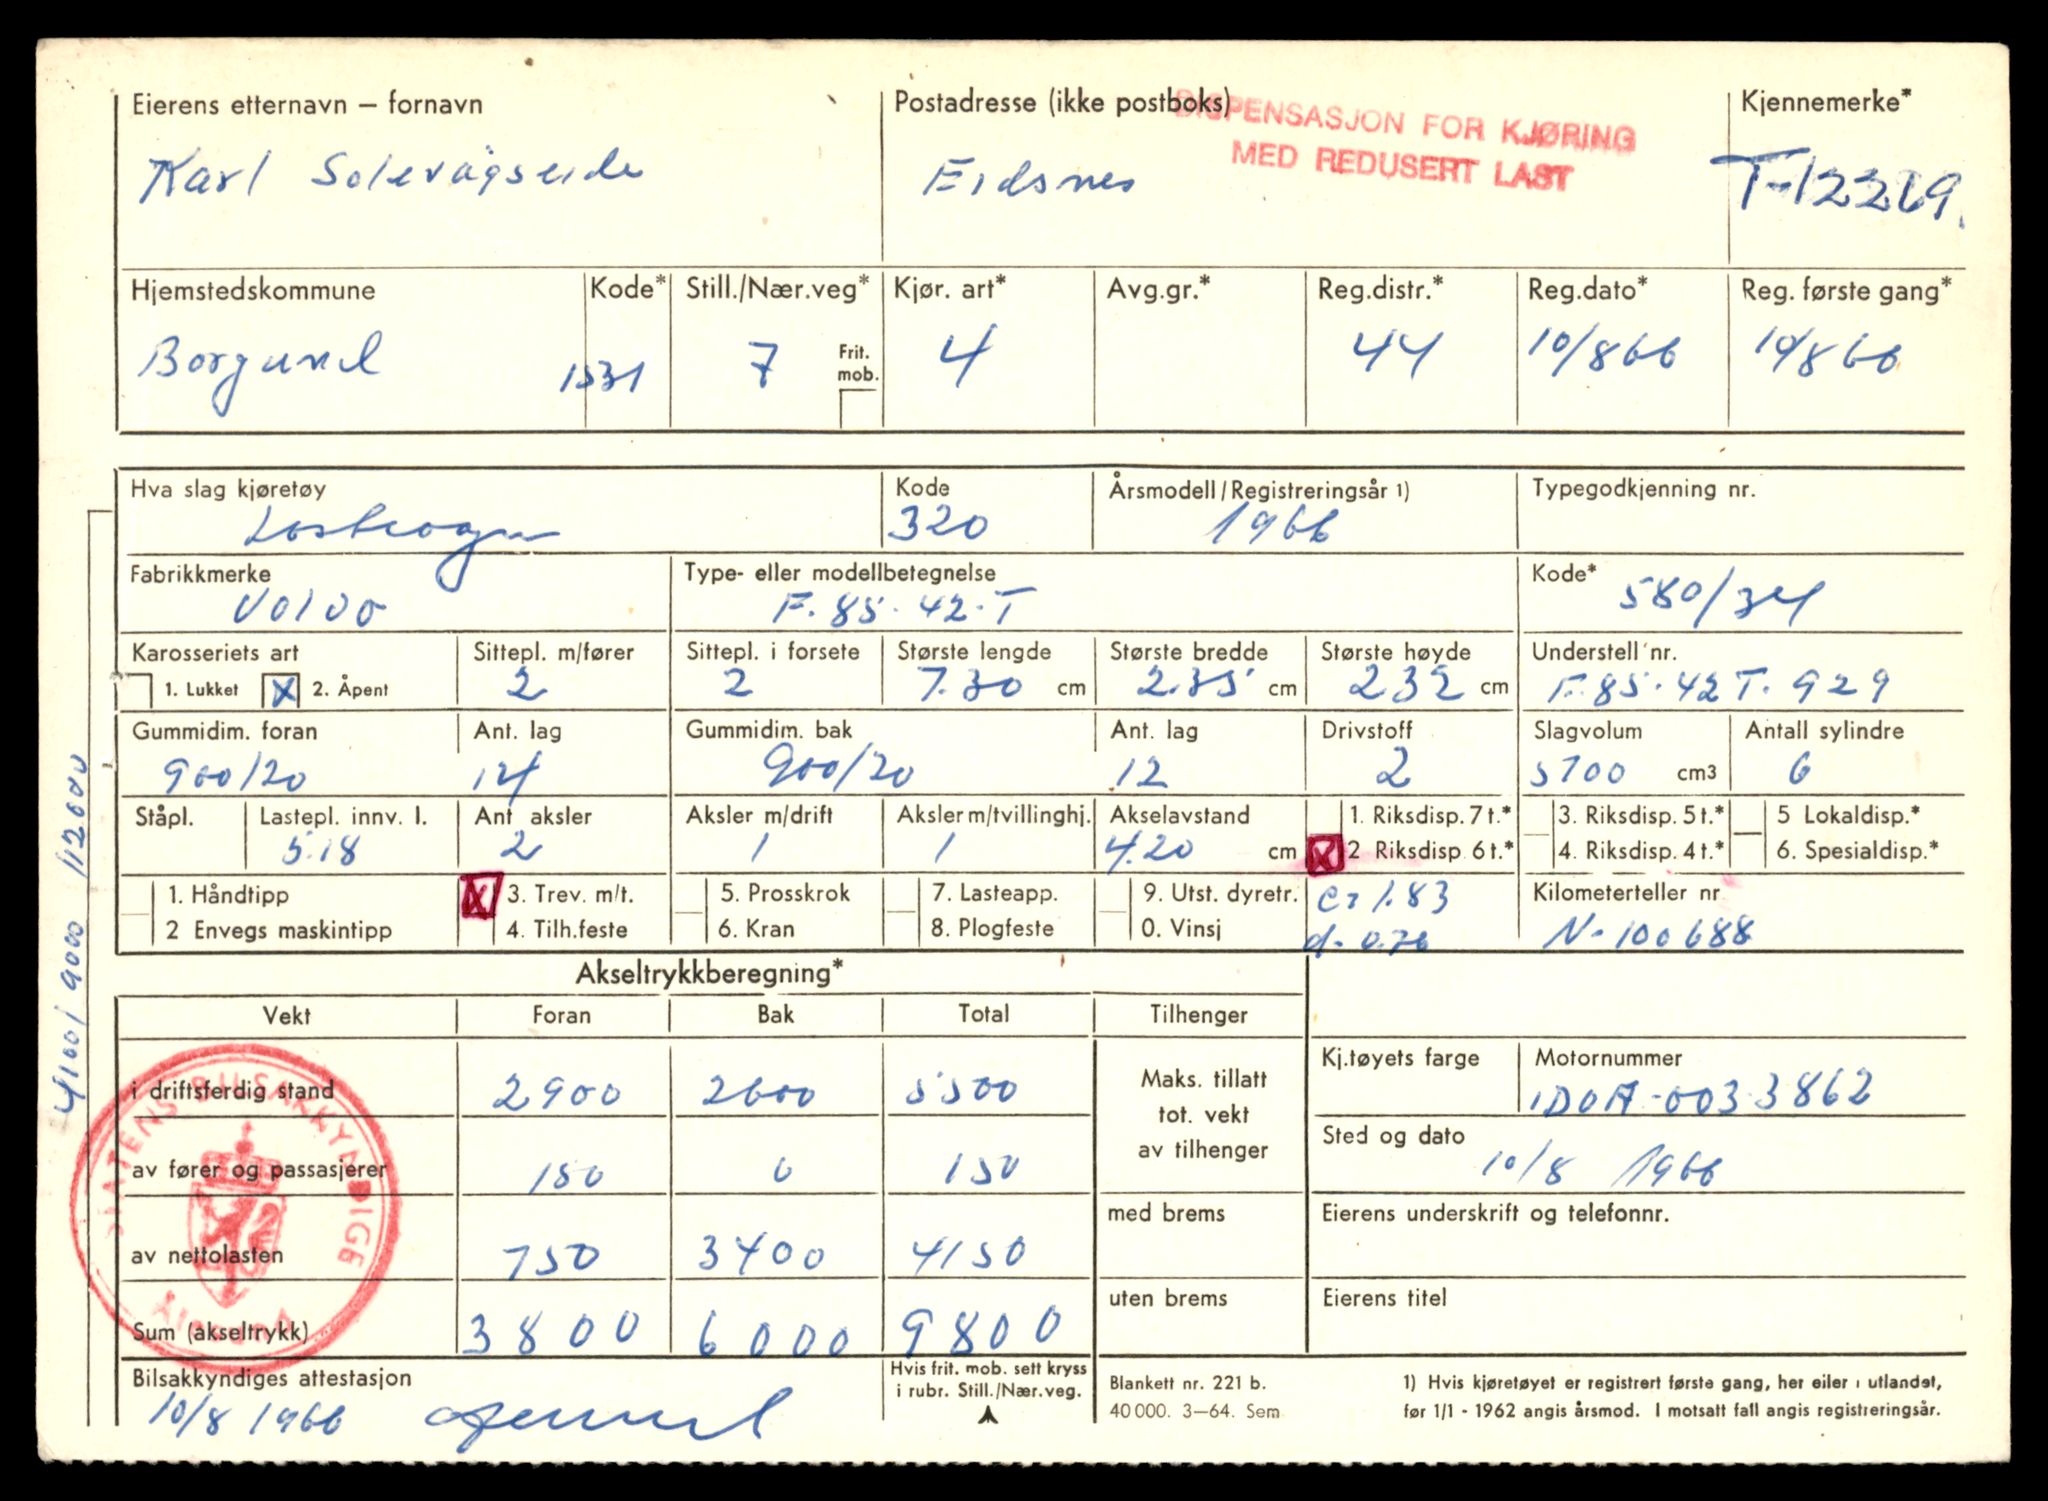 Eierens etternavn – fornavn
Karl Solevågseide
Postadresse (ikke postboks)
DISPENSASJON FOR KJØRING
MED REDUSERT LAST
Eidsnes
Kjennemerke*
T-12219.
Hjemstedskommune
Borgund
Kode*
1531
Still./Nær.veg*
7
Frit.
mob.
Kjør. art*
4
Avg.gr.*
Reg.distr.*
44
Reg.dato*
10/8 66
Reg. første gang*
10/8 66
Hva slag kjøretøy
Lastevogn
Kode
320
Årsmodell/Registreringsår 1)
1966
Typegodkjenning nr.
Fabrikkmerke
Volvo
Type- eller modellbetegnelse
F.85.42.T
Kode*
580/34
Karosseriets art
1. Lukket X 2. Åpent
Sittepl. m/fører
2
Sittepl. i forsete
2
Største lengde
7.30 cm
Største bredde
2.35 cm
Største høyde
232 cm
Understell nr.
F.85.42 T. 929
Gummidim. foran
900/20
Ant. lag
14
Gummidim. bak
900/20
Ant. lag
12
Drivstoff
2
Slagvolum
5100 cm3
Antall sylindre
6
Ståpl.
Lastepl. innv. l.
5.18
Ant aksler
2
Aksler m/drift
1
Aksler m/tvillinghj.
1
Akselavstand
4.20 cm
1. Riksdisp. 7 t.*
X 2 Riksdisp. 6 t.*
3. Riksdisp. 5 t.*
4. Riksdisp. 4 t.*
5 Lokaldisp.*
6. Spesialdisp.*
1. Håndtipp
2 Envegs maskintipp
X 3. Trev. m/t.
4. Tilh.feste
5. Prosskrok
6. Kran
7. Lasteapp.
8. Plogfeste
9. Utst. dyretr.
0. Vinsj
c = 1.83
d. 0.76
Kilometerteller nr
N-100688
4100/ 9000 /12600
Akseltrykkberegning*
Vekt Foran Bak Total Tilhenger
i driftsferdig stand 2900 2600 5500
av fører og passasjerer 150 0 150
av nettolasten 750 3400 4150
Sum (akseltrykk) 3800 6000 9800
Maks. tillatt
tot. vekt
av tilhenger
med brems
uten brems
STATENS BILSAKKYNDIGE
Kj.tøyets farge
Motornummer
DOA-0033862
Sted og dato
10/8 1966
Eierens underskrift og telefonnr.
Eierens titel
Bilsakkyndiges attestasjon
10/8 1966
Hvis frit. mob. sett kryss
i rubr. Still./Nær.veg.
Blankett nr. 221 b.
40 000. 3–64. Sem
1) Hvis kjøretøyet er registrert første gang, her eiler i utlandet,
før 1/1 - 1962 angis årsmod. I motsatt fall angis registreringsår.